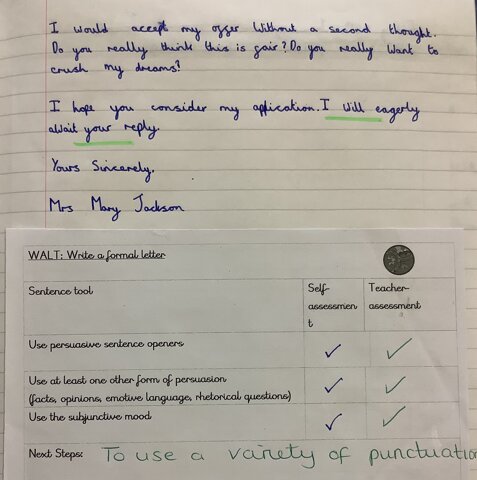 I would accept my offer without a second thought.
Do you really think this is fair? Do you really want to
crush my dreams?
I hope you consider my application. I will eagerly
await your reply.
Yours Sincerely,
Mrs Mary Jackson
WALT: Write a formal letter
Sentence tool
Self-
assessmen
t
Teacher-
assessment
Use persuasive sentence openers
Use at least one other form of persuasion
(facts, opinions, emotive language, rhetorical questions)
Use the subjunctive mood
Next Steps: To use a variety of punctuation